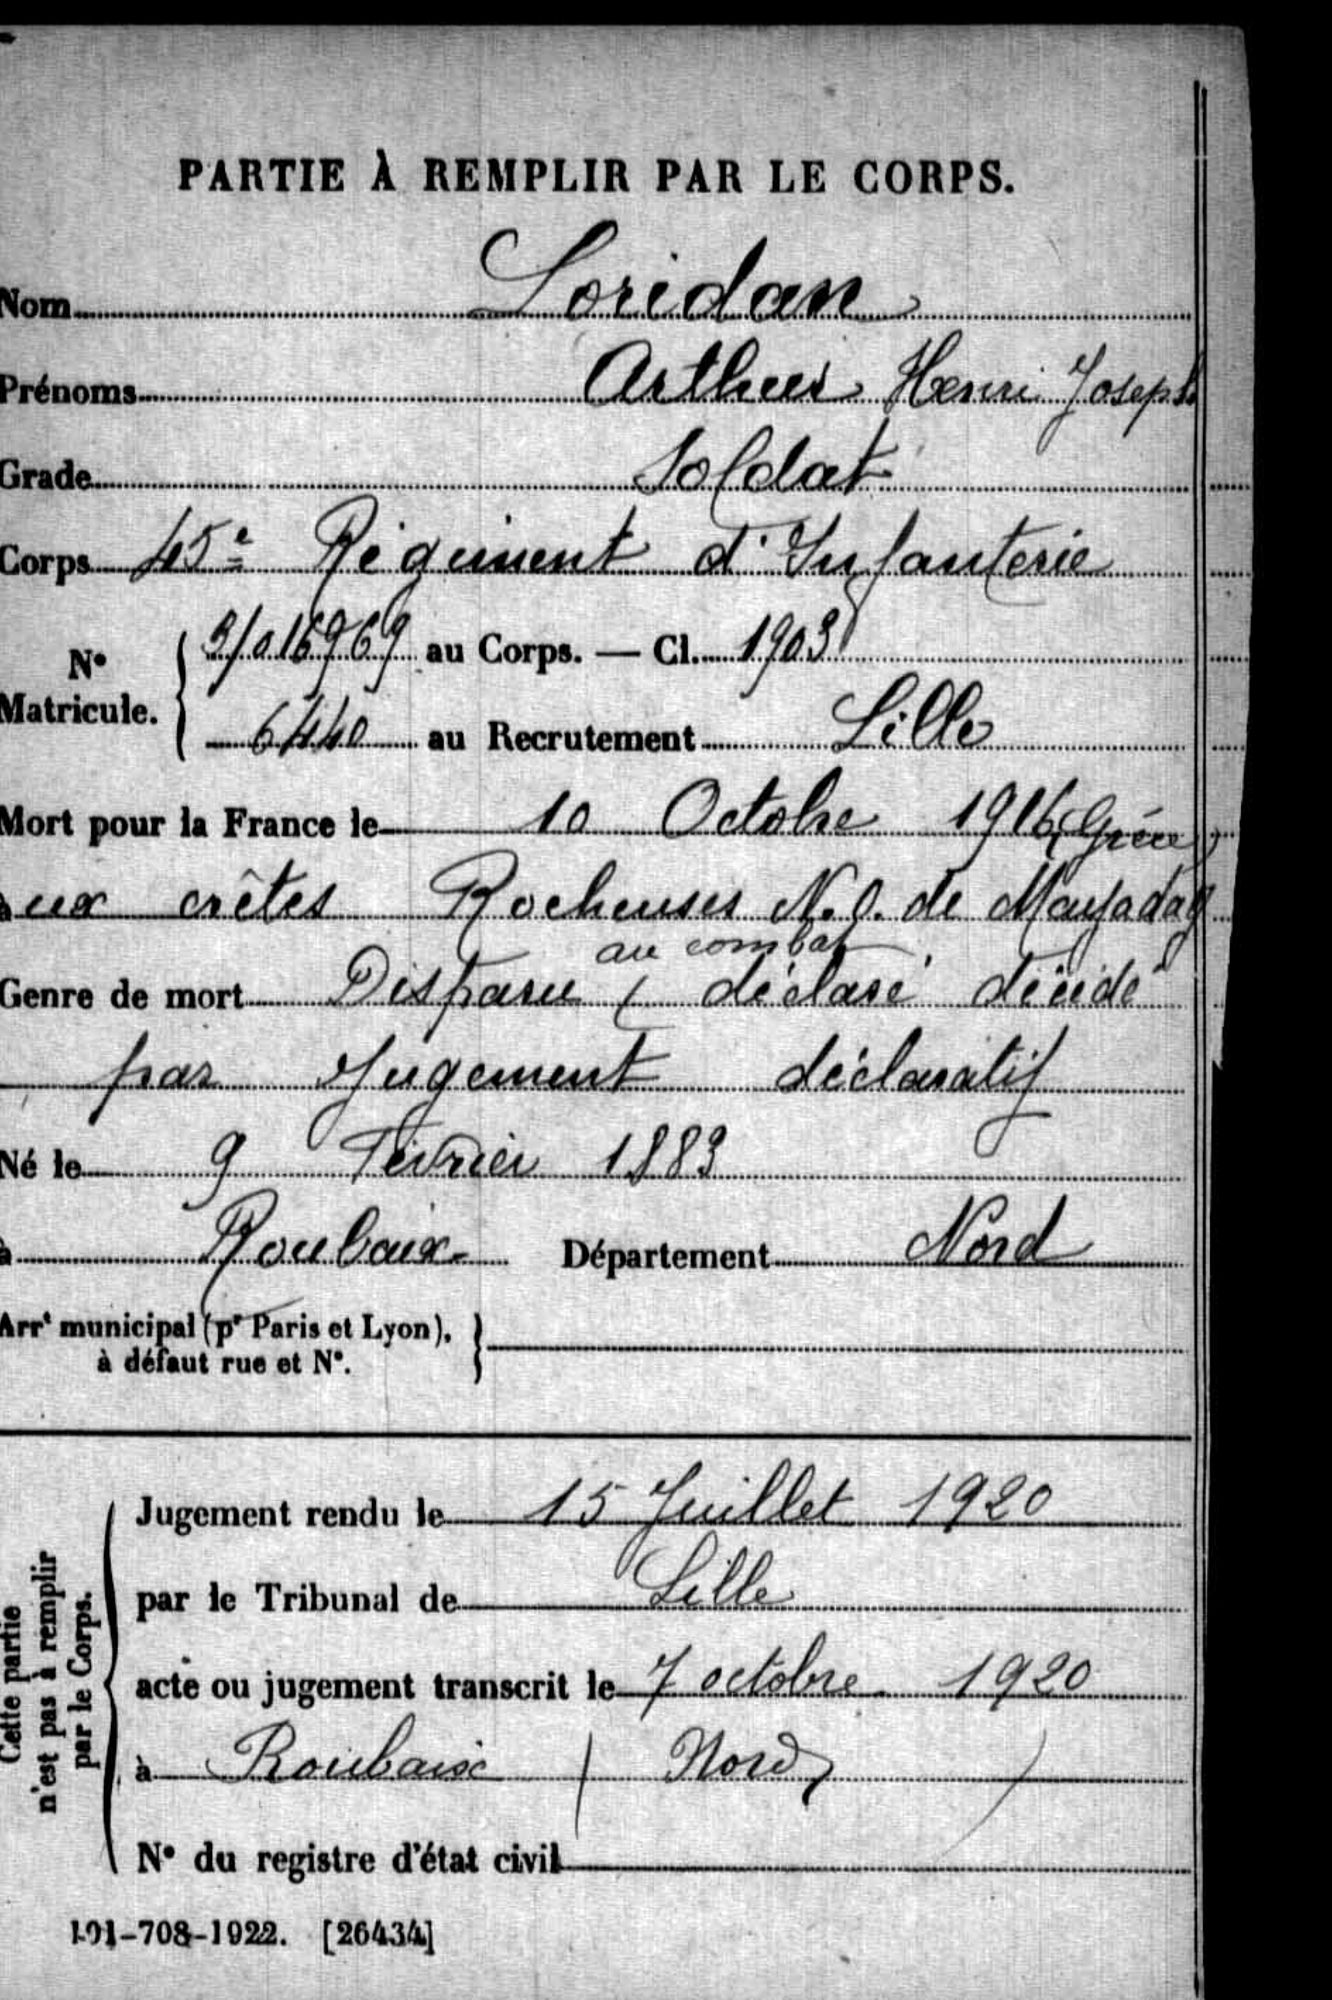 PARTIE À REMPLIR PAR LE CORPS.
Nom Loridan
Prénoms Arthur Henri Joseph
Grade Soldat
Corps 45e Régiment d'Infanterie
N° Matricule. { 3/016969 au Corps. — Cl. 1903
6440 au Recrutement Lille
Mort pour la France le 10 Octobre 1916 (Grèce)
aux crêtes Rocheuses N.O. de Mayadag
au combat
Genre de mort Disparu déclaré décédé
par Jugement déclaratif
Né le 9 Février 1883
à Roubaix Département Nord
Arrt municipal (pr Paris et Lyon),
à défaut rue et N°.
Cette partie
n'est pas à remplir
par le Corps.
Jugement rendu le 15 Juillet 1920
par le Tribunal de Lille
acte ou jugement transcrit le 7 octobre 1920
à Roubaix (Nord)
N° du registre d'état civil
101-708-1922. [26434]